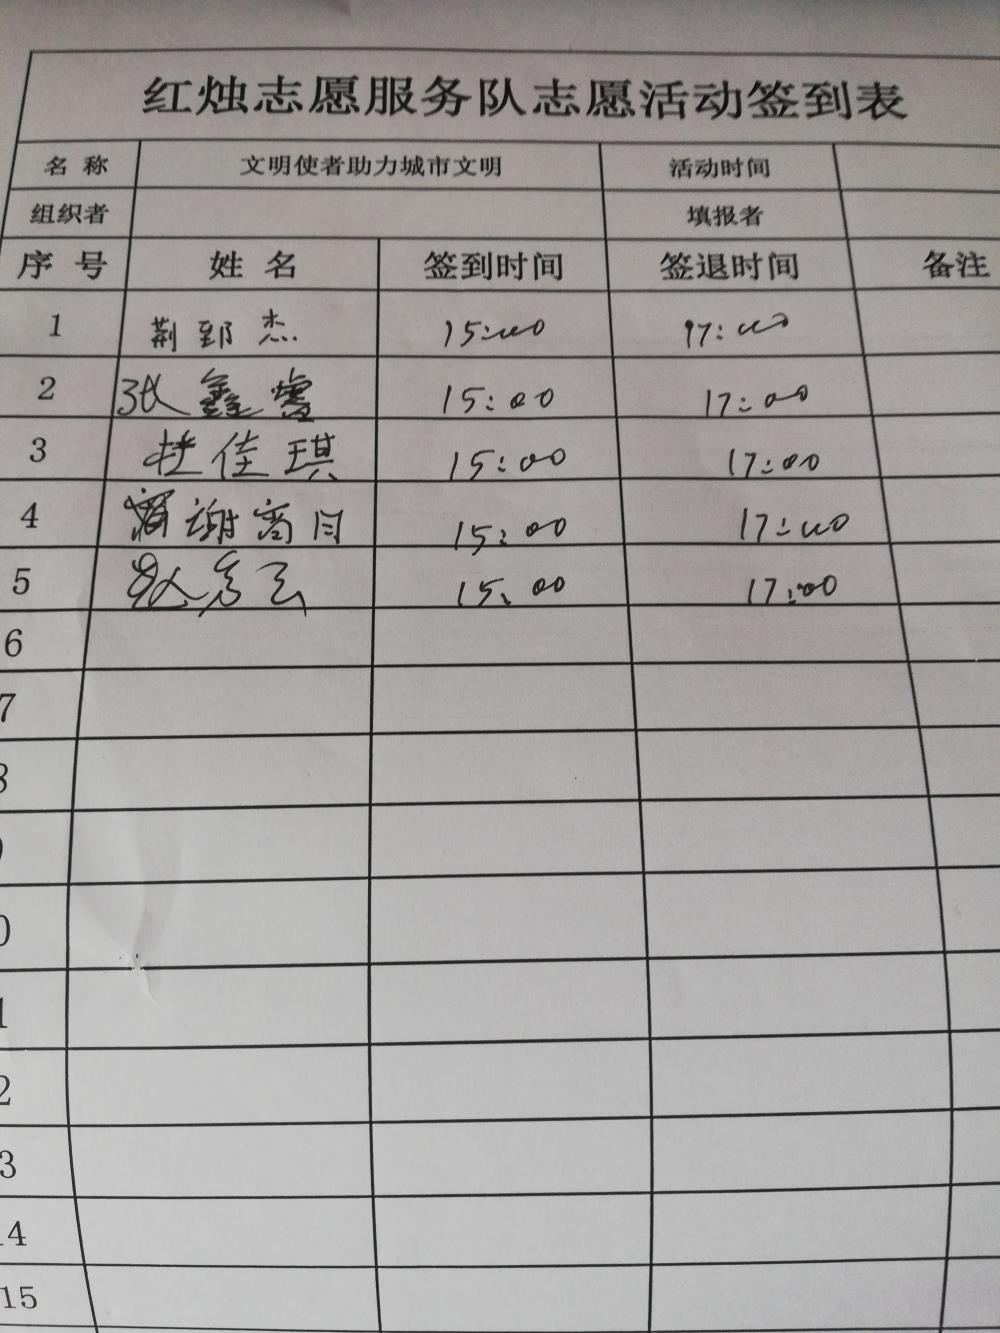 红烛志愿服务队志愿活动签到表
名 称 文明使者助力城市文明 活动时间
组织者 填报者
序 号 姓 名 签到时间 签退时间 备注
1 荆郅杰 15:00 17:00
2 张鑫睿 15:00 17:00
3 杜佳琪 15:00 17:00
4 谢高月 15:00 17:00
5 15:00 17:00
6
7
8
9
0
1
2
3
14
15